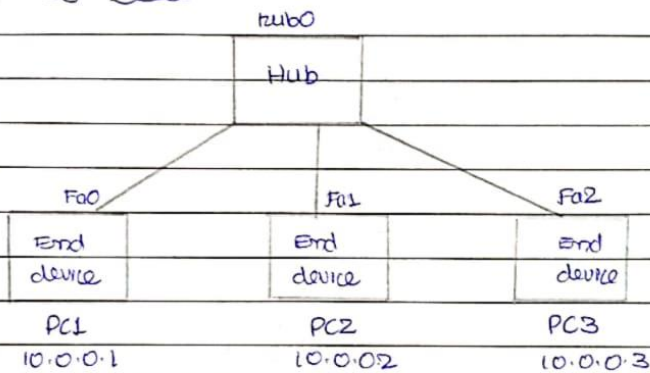 hub0
Hub
Fa0 Fa1 Fa2
End End End
device device device
PC1 PC2 PC3
10.0.0.1 10.0.02 10.0.0.3